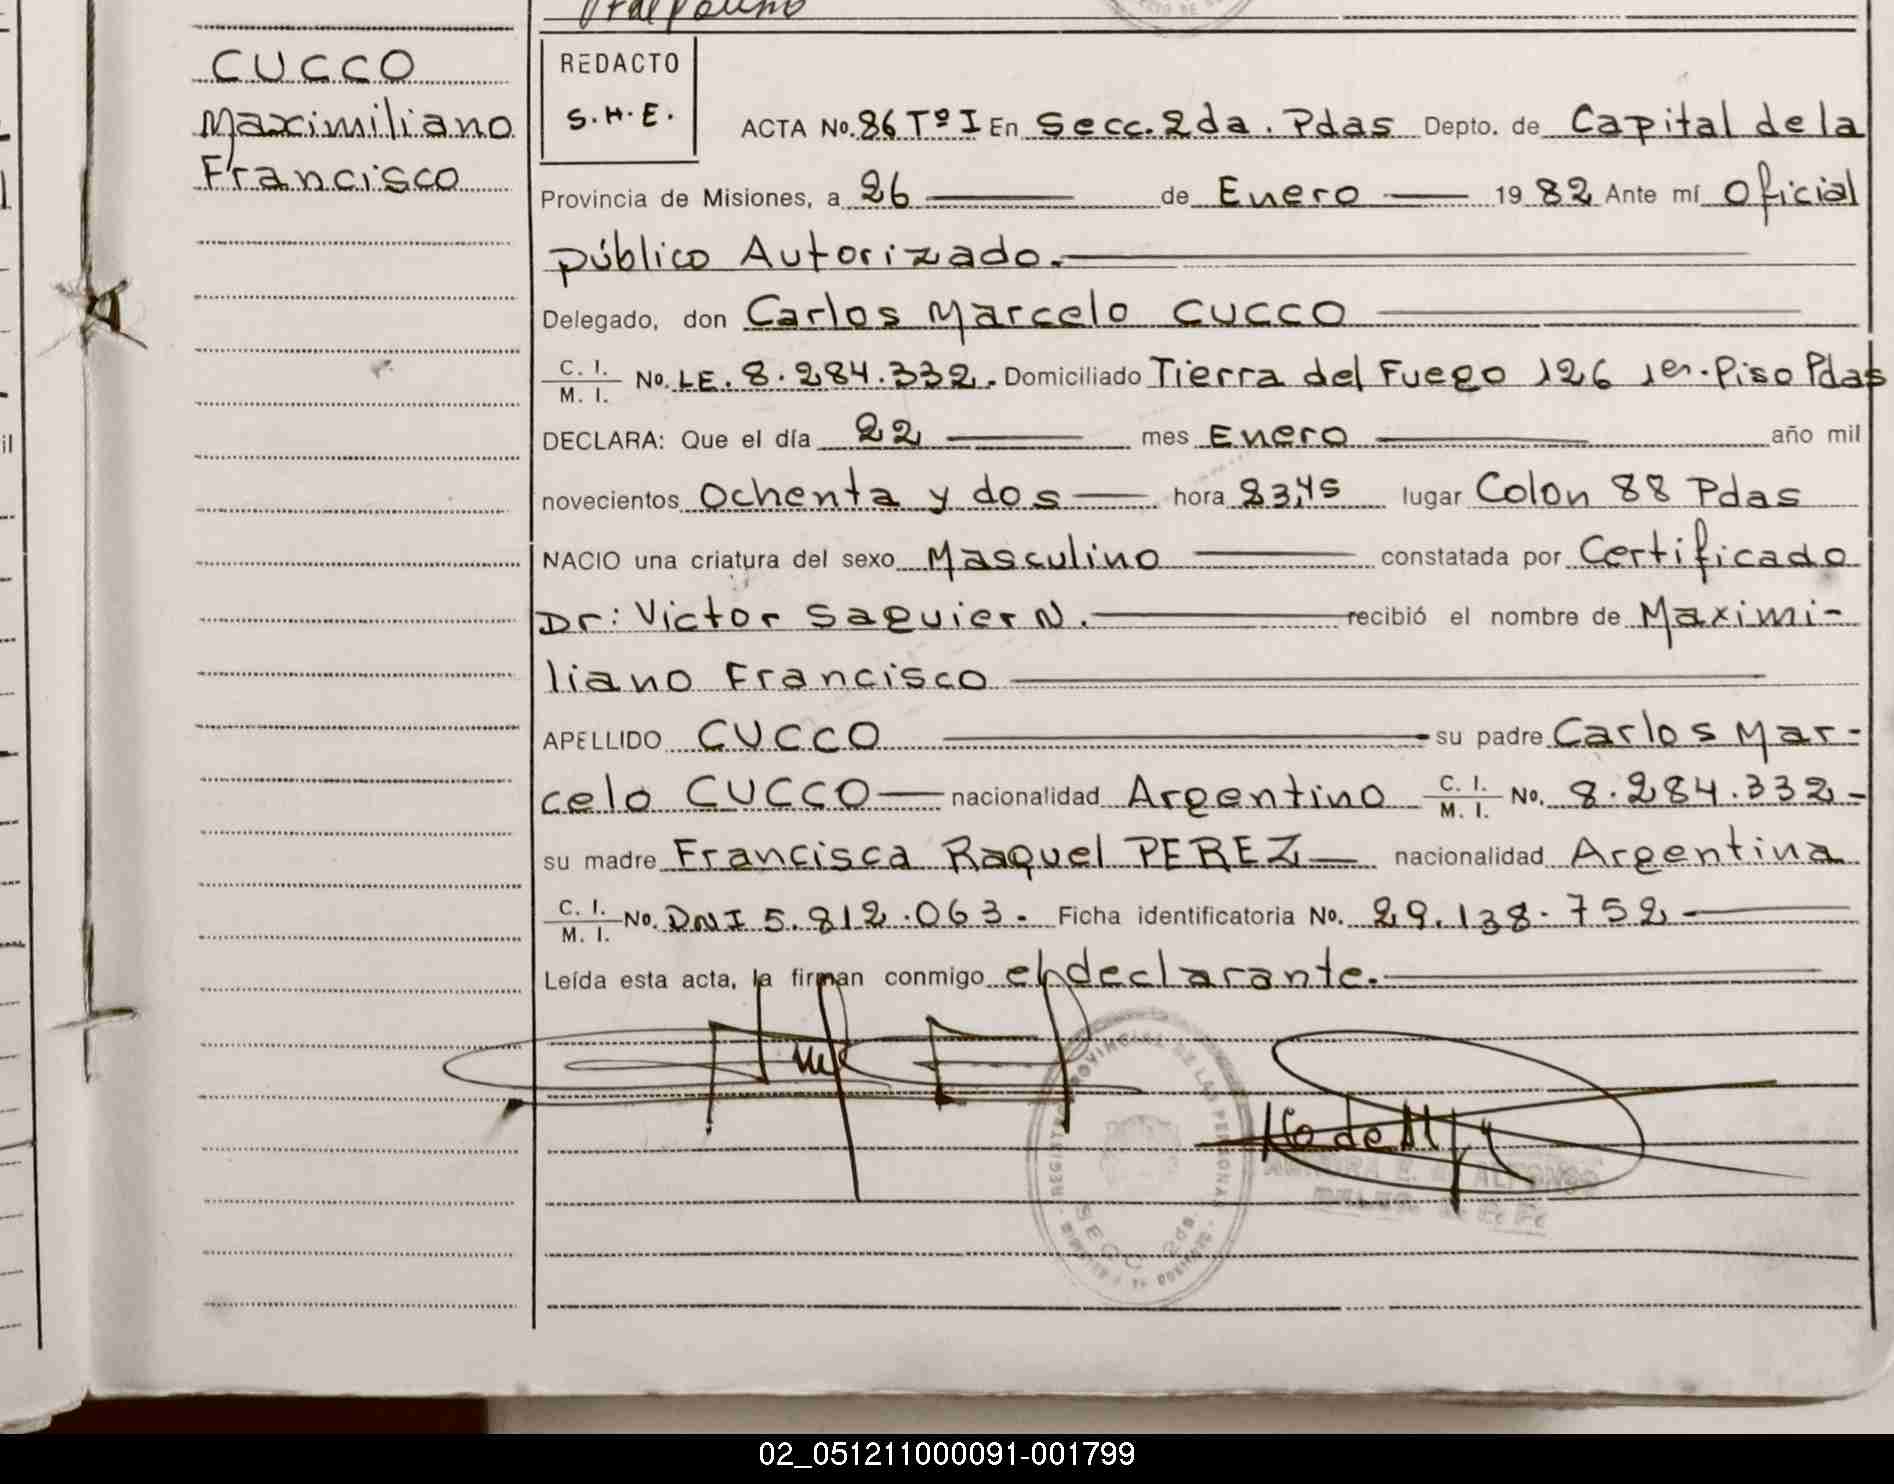 CUCCO
Maximiliano
Francisco
REDACTO
S.H.E.
ACTA No. 86 Tº I En Secc. 2da. Pdas Depto. de Capital de la
Provincia de Misiones, a 26 de Enero 1982 Ante mí Oficial
público Autorizado.
Delegado, don Carlos Marcelo CUCCO
C. I. / M. I. No. LE. 8.284.332. Domiciliado Tierra del Fuego 126 1er. Piso Pdas
DECLARA: Que el día 22 mes Enero año mil
novecientos Ochenta y dos hora 23,45 lugar Colon 88 Pdas
NACIO una criatura del sexo Masculino constatada por Certificado
Dr: Victor Saguier N. recibió el nombre de Maximi-
liano Francisco
APELLIDO CUCCO su padre Carlos Mar-
celo CUCCO nacionalidad Argentino C. I. / M. I. No. 8.284.332-
su madre Francisca Raquel PEREZ nacionalidad Argentina
C. I. / M. I. No. DNI 5.812.063. Ficha identificatoria No. 29.138.752
Leída esta acta, la firman conmigo el declarante.
REGISTRO PROVINCIAL DE LAS PERSONAS
SECC. 2da.
02_051211000091-001799